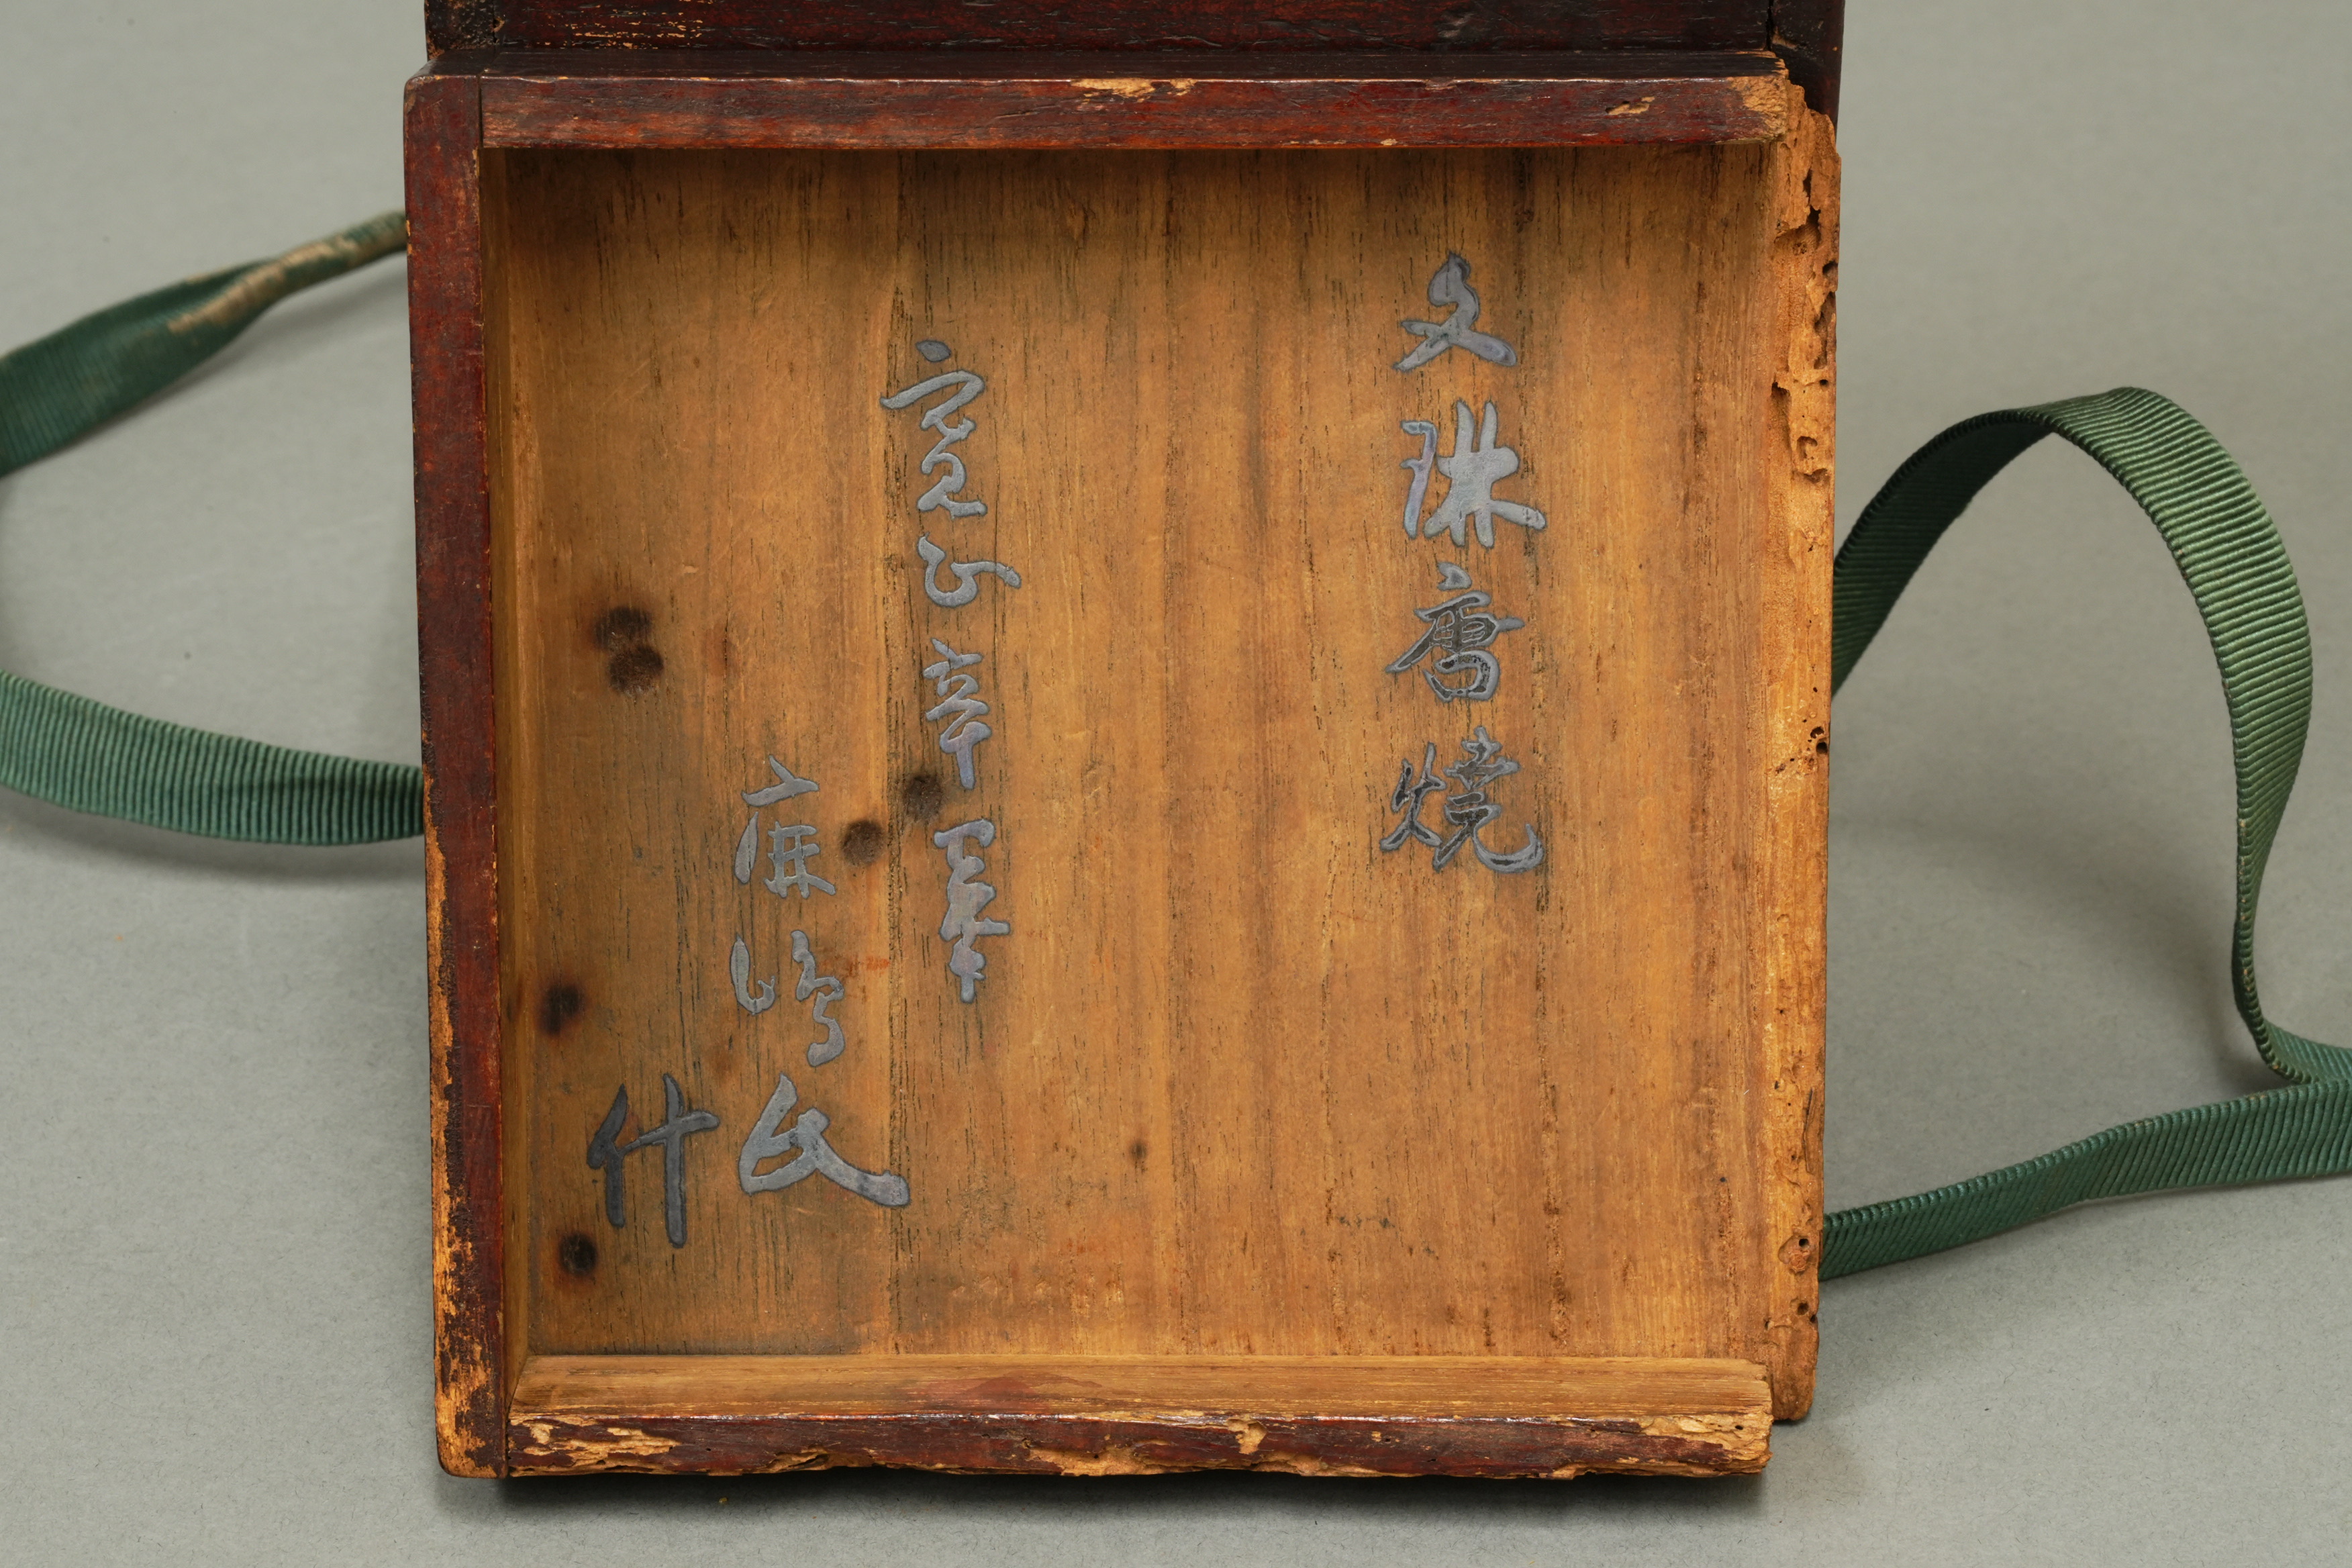 文琳唐焼
寛 辛
麻嶋氏
什